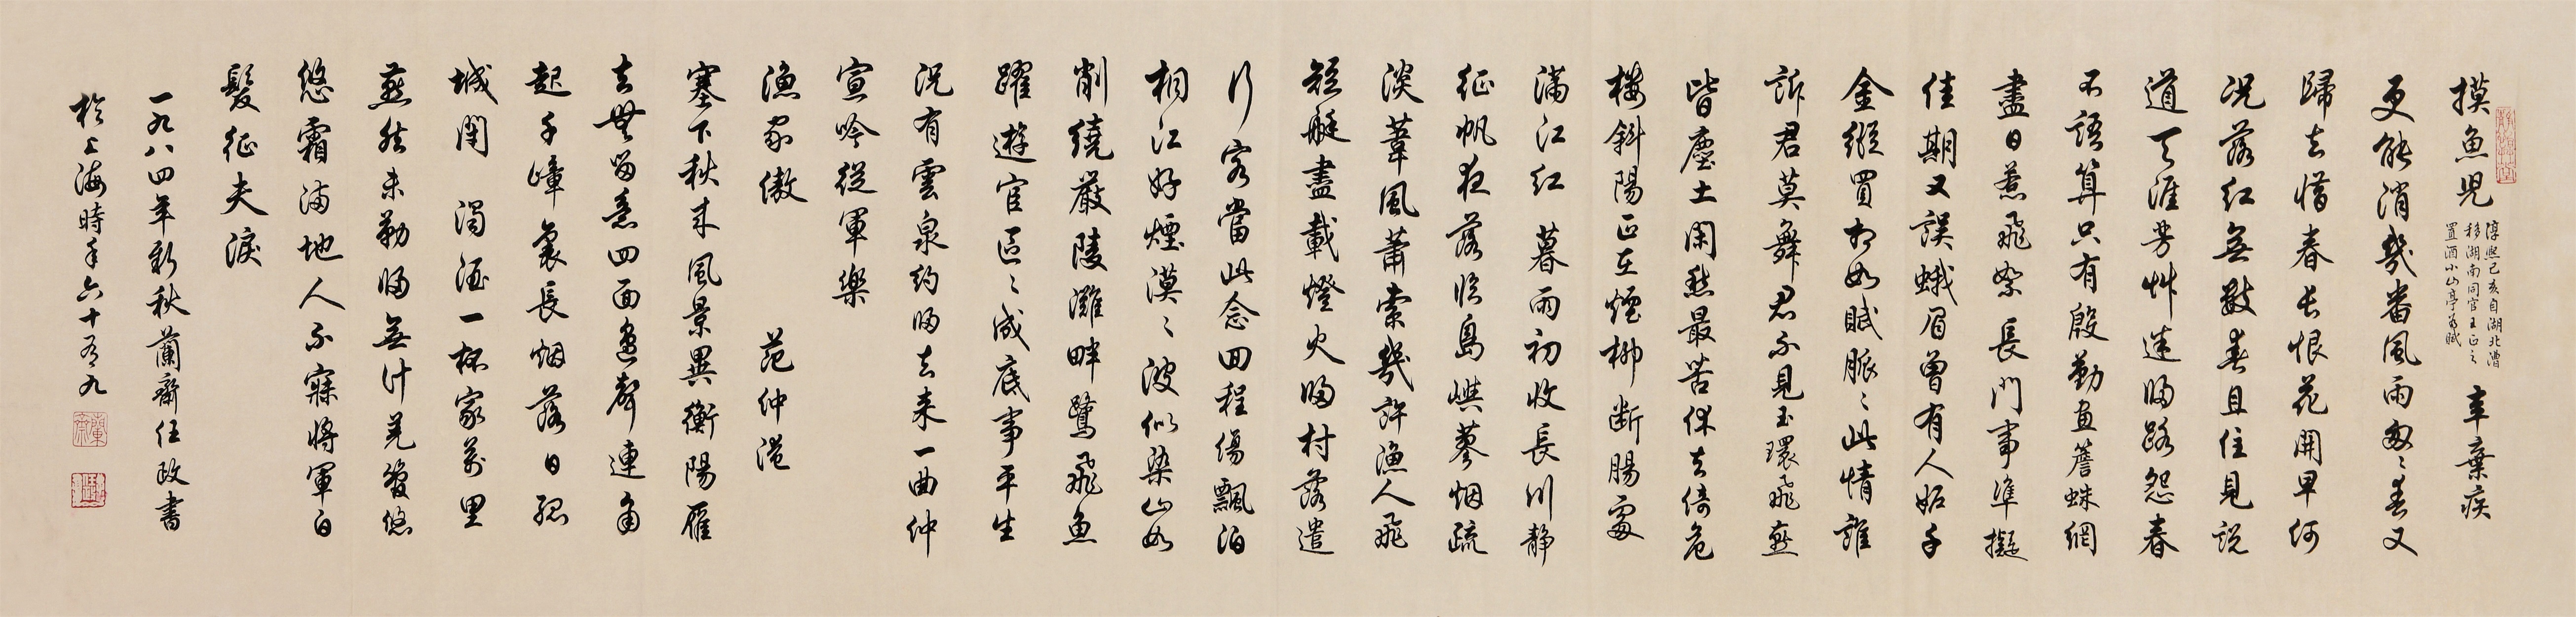 摸魚児
淳熙己亥自湖北漕
移湖南同官王正之
置酒小山亭為賦
辛棄疾
更能消幾番風雨匆〻春又
歸去惜春長恨花開早何
况落紅無數春且住見説
道天涯芳艸迷歸路怨春
不語算只有殷勤畫簷蛛網
盡日惹飛絮長門事準擬
佳期又誤蛾眉曾有人妬千
金縱買相如賦脈〻此情誰
訴君莫舞君不見玉環飛燕
皆塵土閑愁最苦休去倚危
樓斜陽正在煙柳断腸處
滿江红 暮雨初收長川静
征帆夜落臨島嶼蓼烟疏
淡葦風蕭索幾許漁人飛
短艇盡載燈火歸村落遣
行客當此念回程傷飄泊
桐江好煙漠〻波似染山如
削繞嚴陵灘畔鷺飛魚
躍遊宦區〻成底事平生
况有雲泉約歸去来一曲仲
宣吟從軍樂
漁家傲 范仲淹
塞下秋来風景異衡陽雁
去無留意四面邊聲連角
起千嶂裏長烟落日孤
城閉 濁酒一杯家萬里
燕然未勒歸無計羌管悠
悠霜满地人不寐將軍白
髮征夫淚
一九八四年新秋蘭齋任政書
於上海時年六十有九
蘭齋